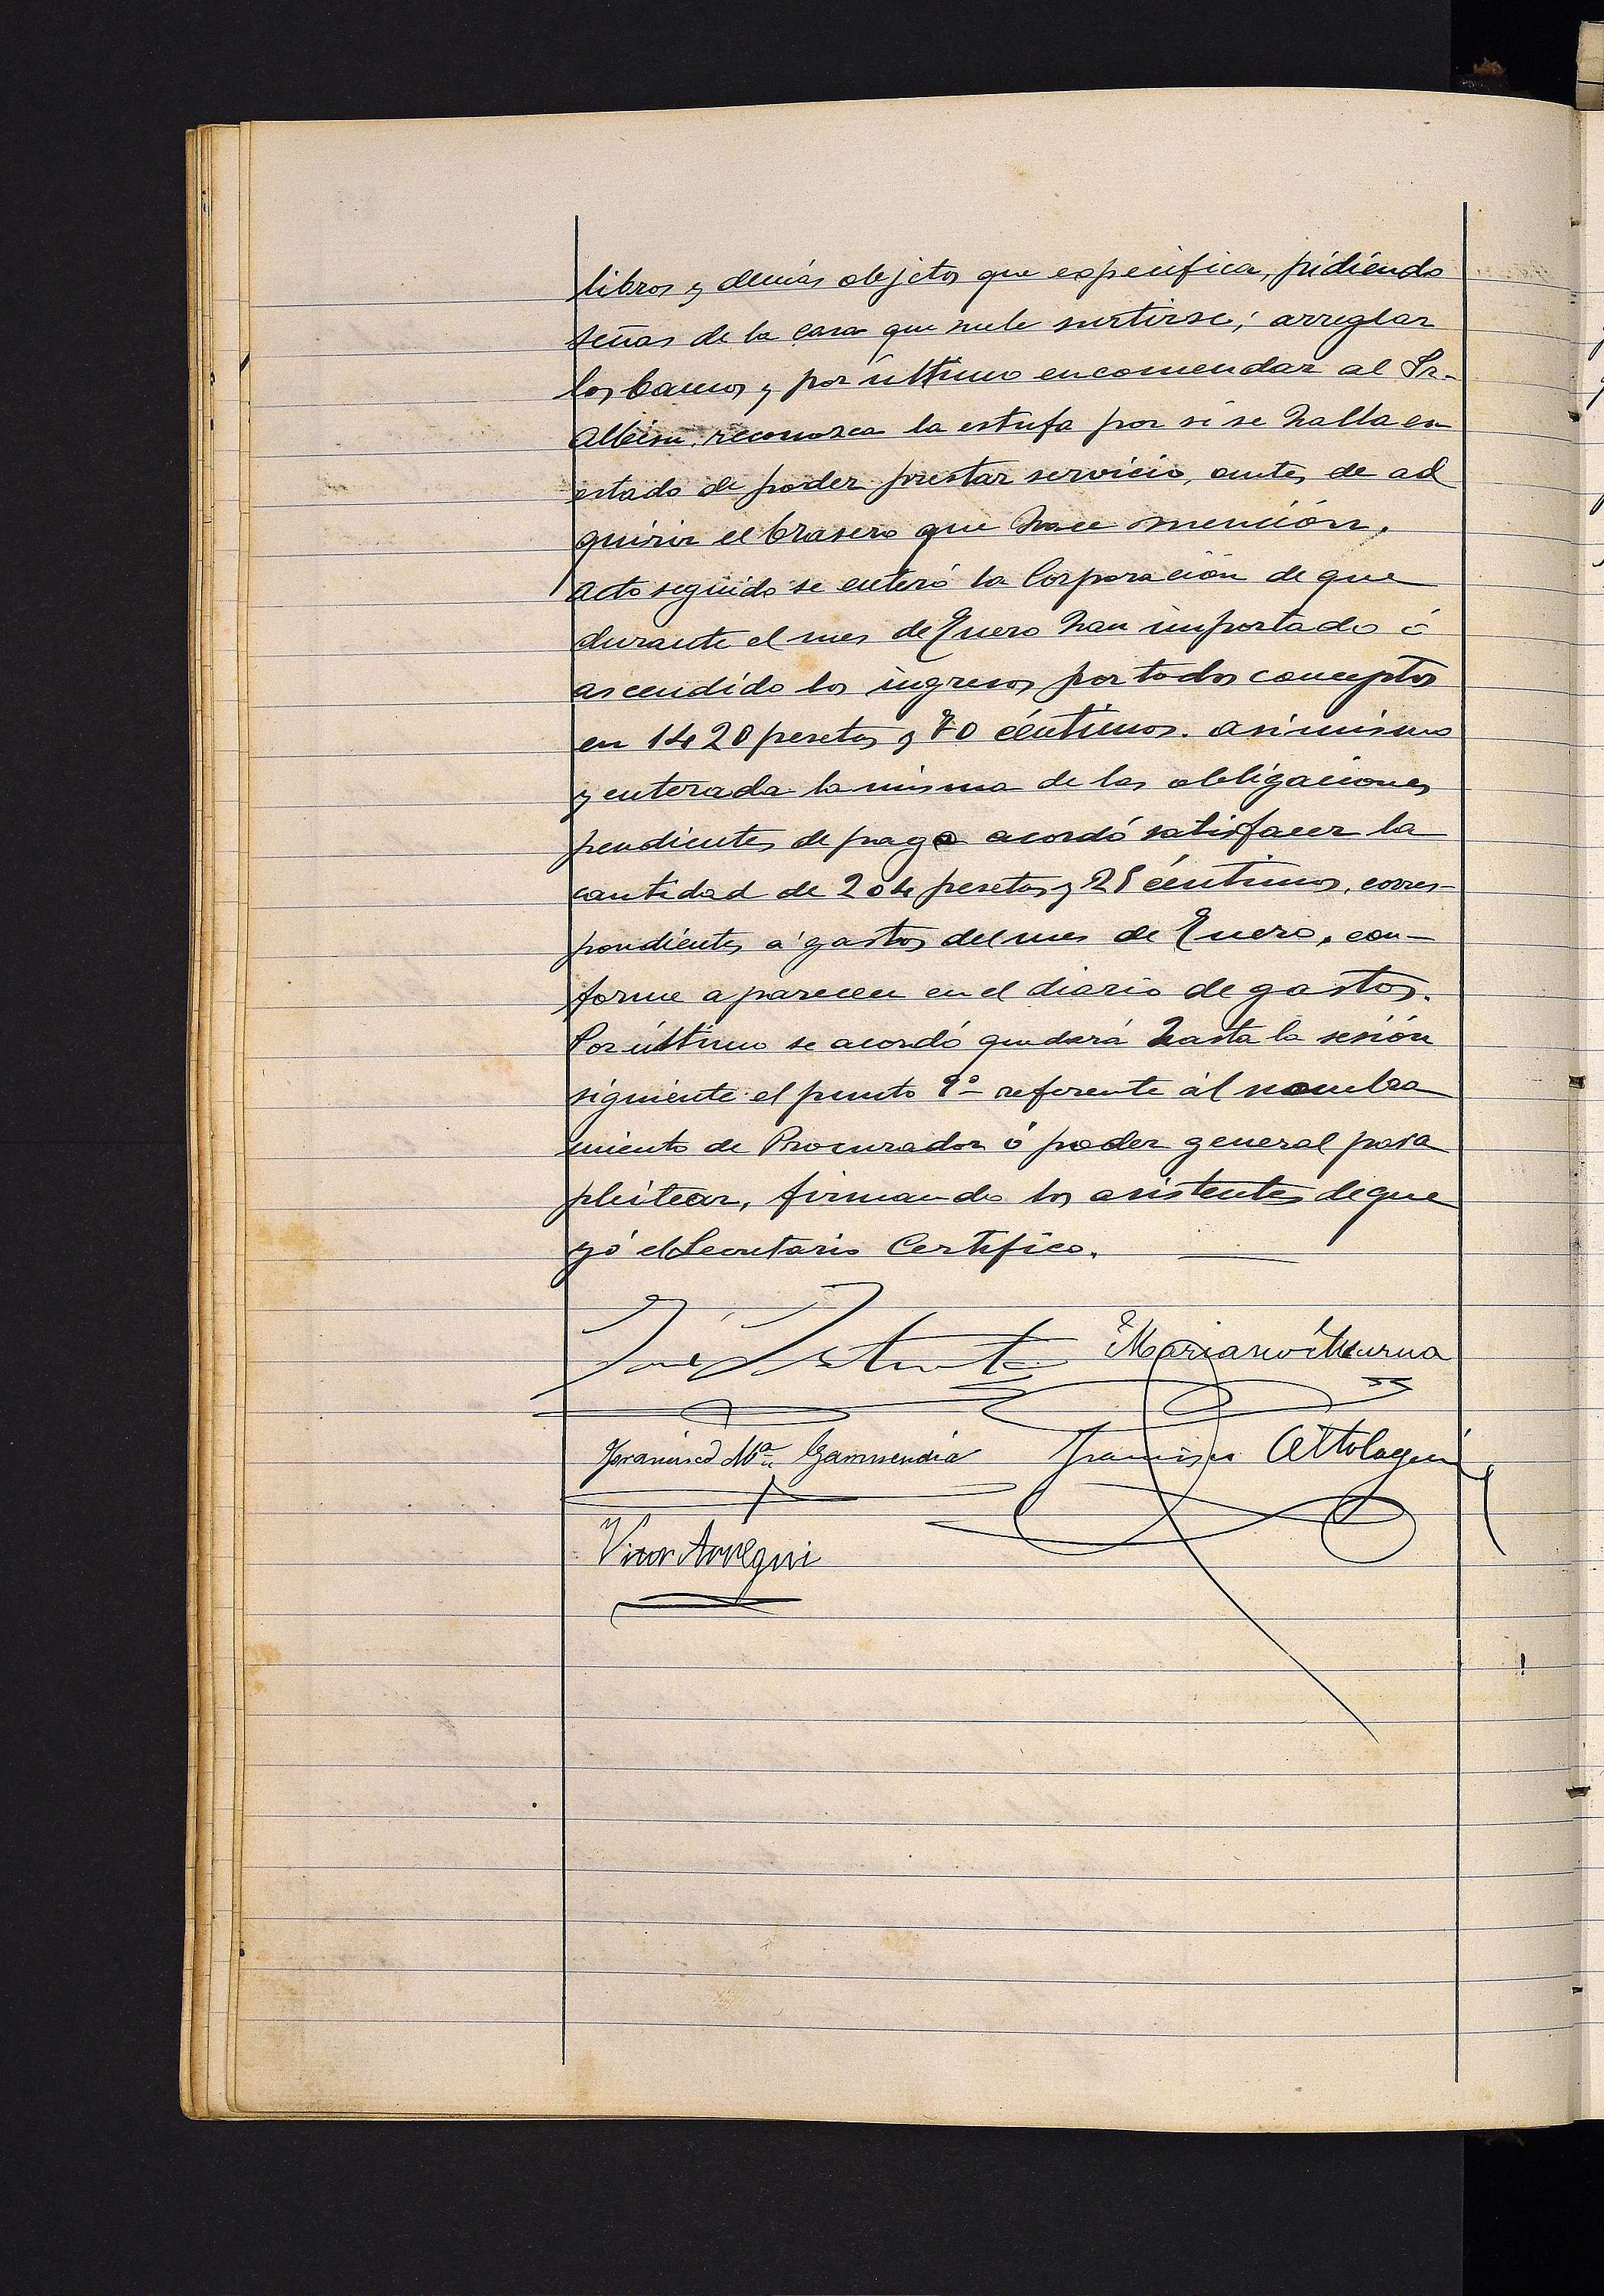 libros y demás objetos que especifica, pidiendo
señas de la casa que suele surtirse; arreglar
los bancos y por último encomendar al Sr.
Albisu reconozca la estufa por si se halla en
estado de poder prestar servicio, antes de ad
quirir el brasero que hace mención.
Acto seguido se enteró la Corporación de que
durante el mes de Enero han importado ó
ascendido los ingresos por todos conceptos
en 1420 pesetas y 70 céntimos. asimismo
y enterada la misma de las obligaciones
pendientes de pago acordó satisfacer la
cantidad de 204 pesetas y 25 céntimos, corres-
pondientes á gastos del mes de Enero, con-
forme aparecen en el diario de gastos.
Por último se acordó quedará hasta la sesión
siguiente el punto 9º referente al nombra
miento de Procurador ó poder general para
pleitear, firmando los asistentes de que
yó el Secretario Certifico.
José Mariano Iturria
Francisco Mª Garmendia Francisco Altolagui
Victor Arregui